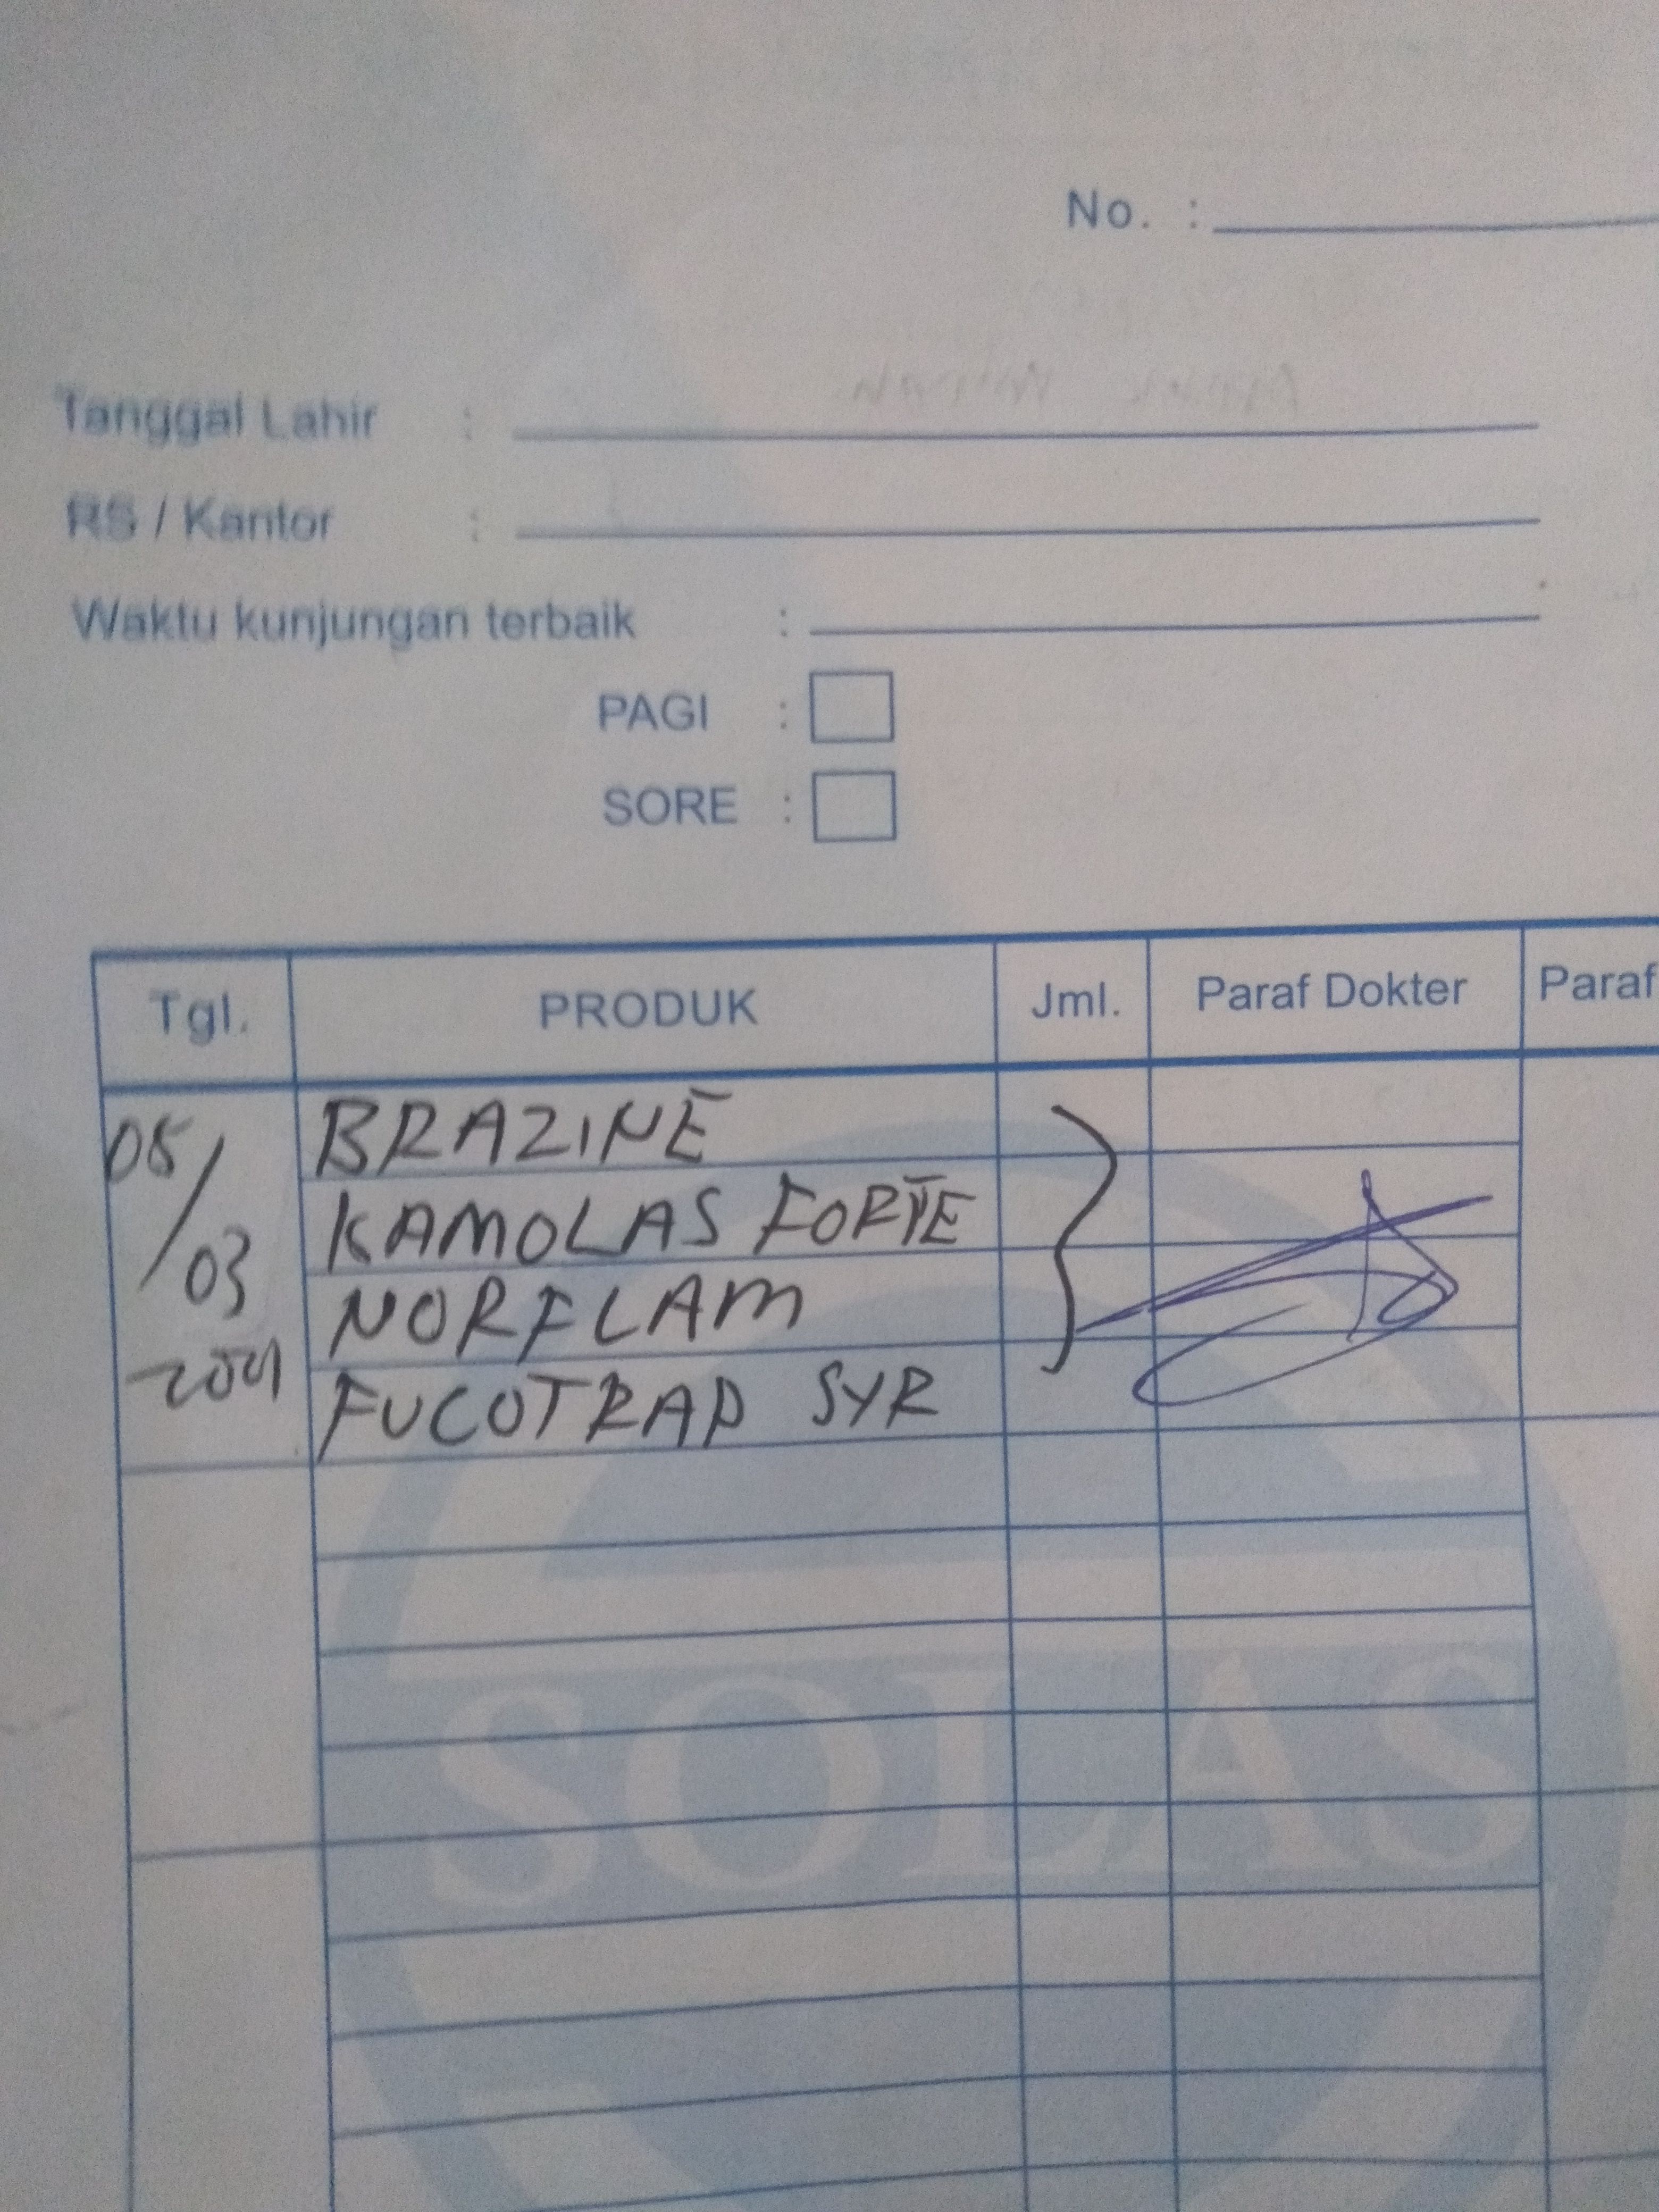 No. :
Tanggal Lahir :
RS / Kantor :
Waktu kunjungan terbaik :
PAGI :
SORE :
Tgl. PRODUK Jml. Paraf Dokter Paraf
05/03 BRAZINE
KAMOLAS FORTE
NORFLAM
FUCOTRAP SYR
SOLAS